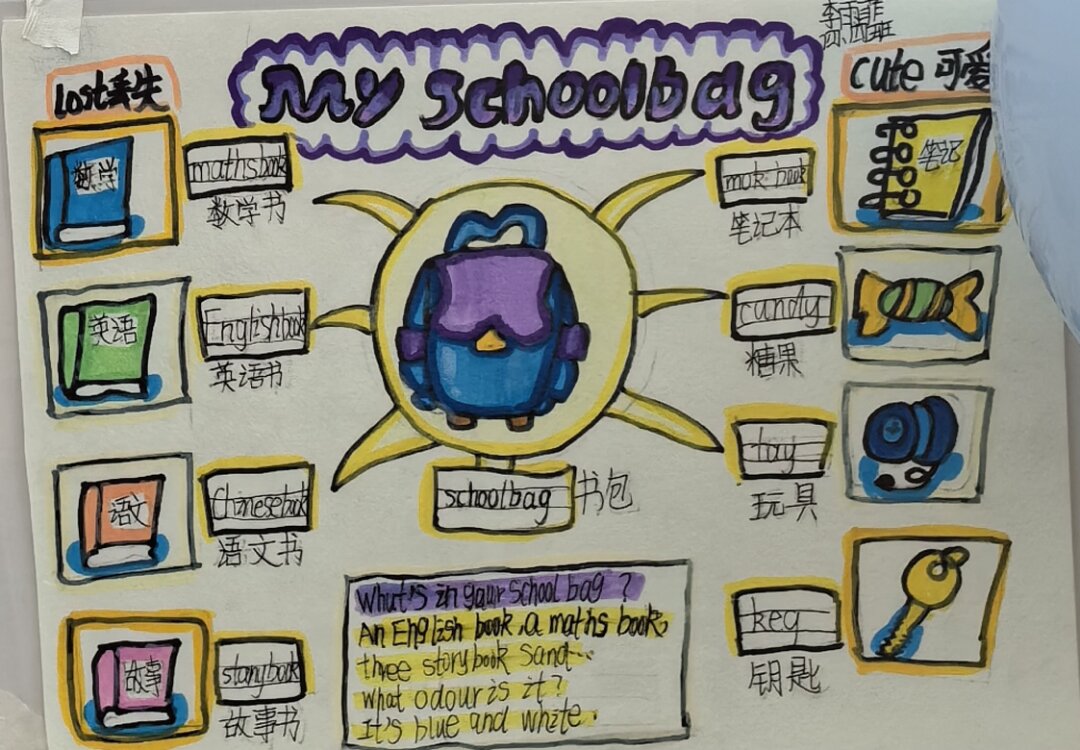 My schoolbag
四(四)班
lost丢失
cute 可爱
数学
maths book
数学书
英语
English book
英语书
语文
Chinese book
语文书
故事
storybook
故事书
schoolbag 书包
笔记
book
笔记本
candy
糖果
toy
玩具
key
钥匙
What's in your school bag ?
An English book, a maths book,
three storybook sand...
what odour is it?
It's blue and white.